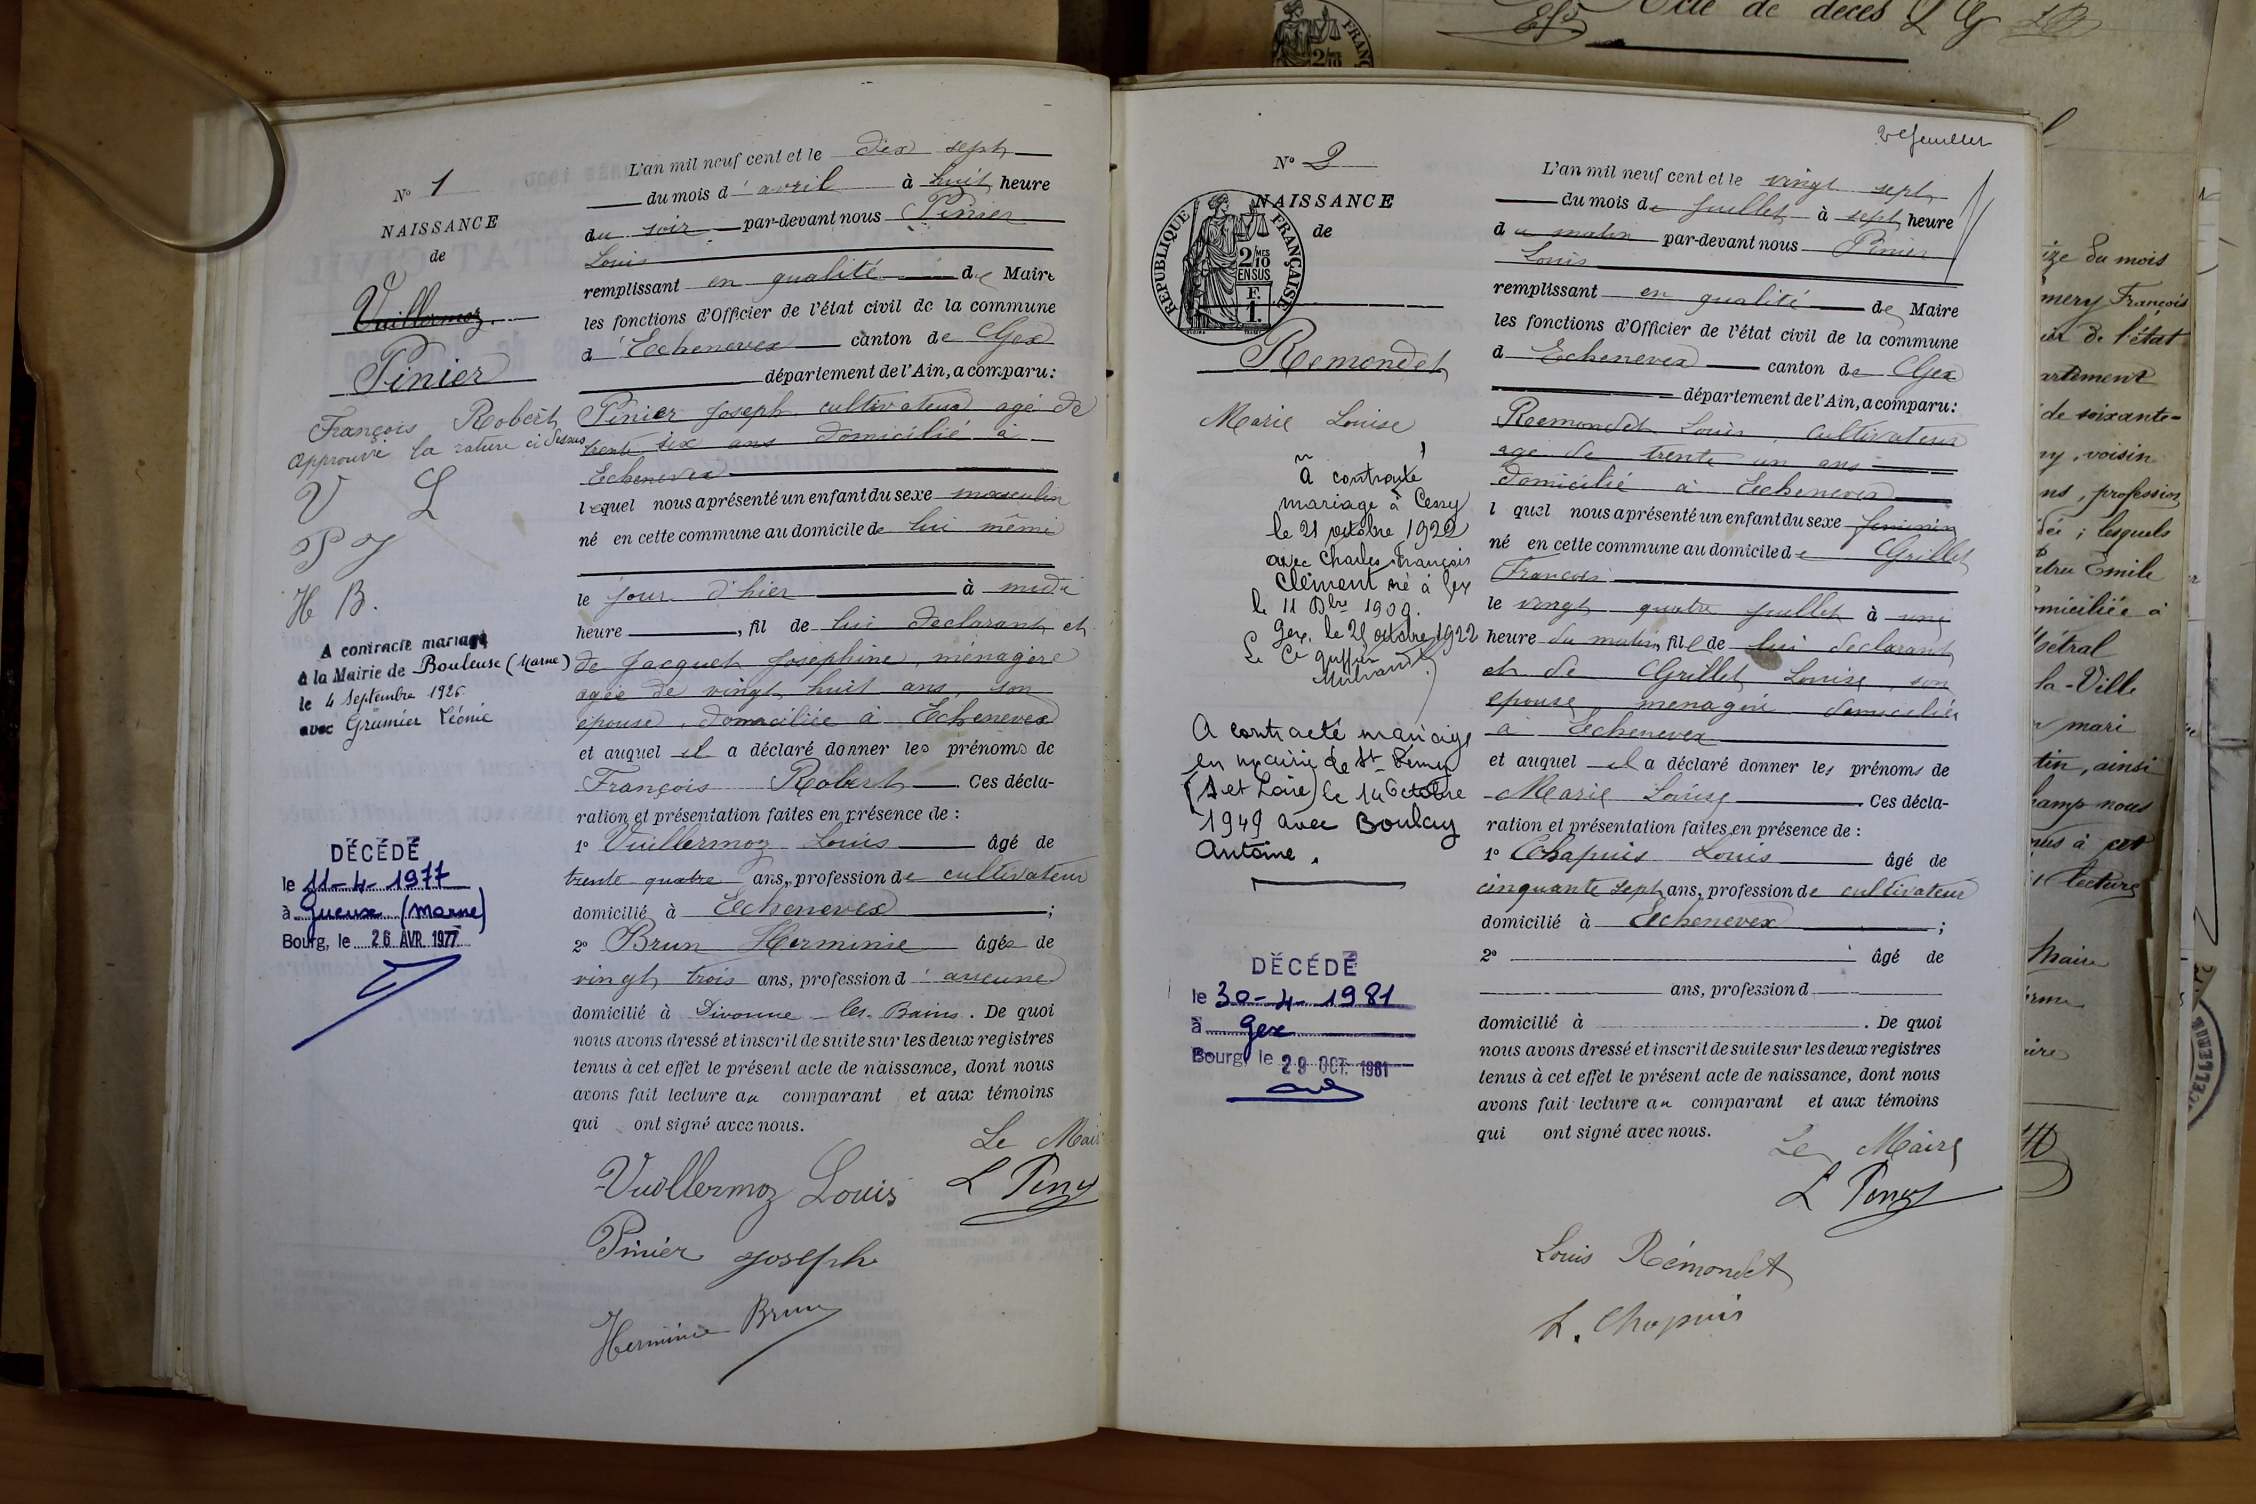 Acte de décès
N° 1
NAISSANCE
de
Vuillermoz
Pinier
François Robert
approuvé la rature ci dessus
V L
P J
H B.
A contracté mariage
à la Mairie de Bouleuse (Marne)
le 4 Septembre 1926
avec Grumier Léonie
DÉCÉDÉ
le 11-4-1977
à Gueux (Marne)
Bourg, le 26 AVR. 1977
L'an mil neuf cent et le dix sept
du mois d'avril à huit heure
du soir par-devant nous Pinier
Louis
remplissant en qualité de Maire
les fonctions d'Officier de l'état civil de la commune
d'Echenevex canton de Gex
département de l'Ain, a comparu:
Pinier Joseph cultivateur agé de
trente six ans domicilié à
Echenevex
lequel nous a présenté un enfant du sexe masculin
né en cette commune au domicile de lui même
le jour d'hier à midi
heure , fil de lui declarant et
de Jacquet Josephine, ménagère
agée de vingt huit ans, son
épouse, domiciliée à Echenevex
et auquel il a déclaré donner les prénoms de
François Robert . Ces décla-
ration et présentation faites en présence de :
1° Vuillermoz Louis âgé de
trente quatre ans, profession de cultivateur
domicilié à Echenevex ;
2° Brun Herminie âgée de
vingt trois ans, profession d'aucune
domicilié à Divonne-les-Bains. De quoi
nous avons dressé et inscrit de suite sur les deux registres
tenus à cet effet le présent acte de naissance, dont nous
avons fait lecture au comparant et aux témoins
qui ont signé avec nous.
Le Maire
Vuillermoz Louis
Pinier Joseph
Herminie Brun
2e feuillet
N° 2
NAISSANCE
de
RÉPUBLIQUE FRANÇAISE
2/10 MES
EN SUS
F.
1.
Remondet
Marie Louise
a contracté
mariage à Cessy
le 21 octobre 1922
avec Charles François
Clément né à Gex
le 11 Dbre 1909.
Gex, le 21 octobre 1922
Le
A contracté mariage
en mairie de St-Rémy
(S et Loire) le 14 Octobre
1949 avec Boulay
Antoine.
DÉCÉDÉ
le 30-4-1981
à Gex
Bourg, le 29 OCT. 1981
L'an mil neuf cent et le vingt sept
du mois de Juillet à sept heure
du matin par-devant nous Pinier
Louis
remplissant en qualité de Maire
les fonctions d'Officier de l'état civil de la commune
d Echenevex canton de Gex
département de l'Ain, a comparu:
Remondet Louis, cultivateur
age de trente un ans
domicilié à Echenevex
l quel nous a présenté un enfant du sexe feminin
né en cette commune au domicile de Grillet
François
le vingt quatre Juillet à une
heure du matin, fille de lui declarant
et de Grillet Louise, son
epouse, menagère domiciliée
à Echenevex
et auquel il a déclaré donner les prénoms de
Marie Louise . Ces décla-
ration et présentation faites en présence de :
1° Chapuis Louis âgé de
cinquante sept ans, profession de cultivateur
domicilié à Echenevex ;
2° âgé de
ans, profession d
domicilié à . De quoi
nous avons dressé et inscrit de suite sur les deux registres
tenus à cet effet le présent acte de naissance, dont nous
avons fait lecture au comparant et aux témoins
qui ont signé avec nous.
Le Maire
Louis Rémondet
L. Chapuis
du mois
François
de l'état
de soixante-
voisin
profession
lesquels
Emile
domiciliée à
la-Ville
mari
ainsi
nous
à cet
lecture
Maire